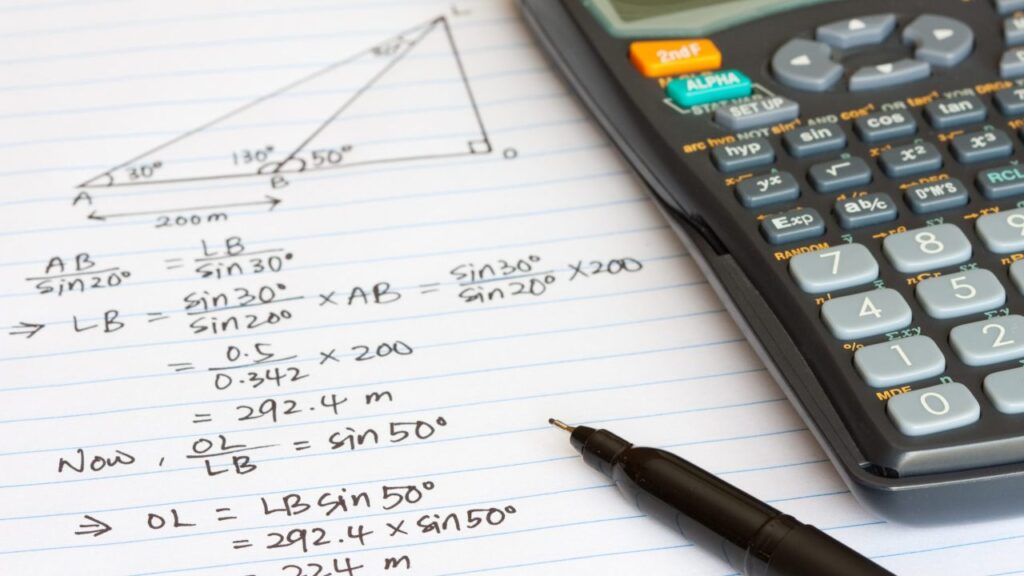 L
20°
A 30° 130° B 50° O
200 m
AB/sin20° = LB/sin30°
⇒ LB = sin30°/sin20° × AB = sin30°/sin20° × 200
= 0.5/0.342 × 200
= 292.4 m
Now, OL/LB = sin50°
⇒ OL = LB sin50°
= 292.4 × sin50°
224 m
2nd F
ALPHA
STAT VAR
SET UP
hyp sin cos tan
√ x² x³
yˣ
Exp ab/c D°M'S RCL
RANDOM
7 8 9
4 5
1 2
MDF
0